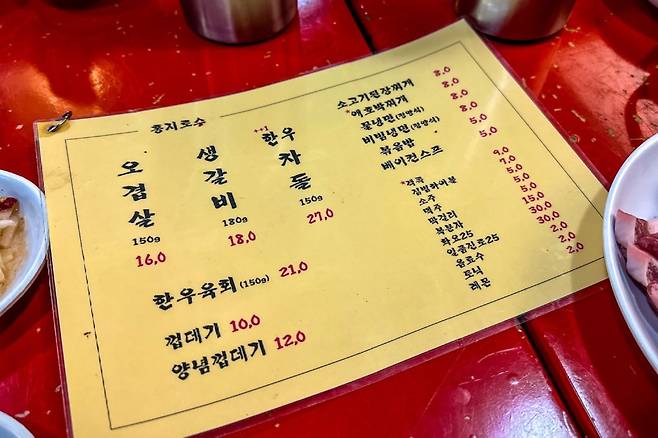 홍지로수
오겹살
150g
16,0
생갈비
180g
18,0
++1 한우
차돌
150g
27,0
한우육회 (150g) 21,0
껍데기 10,0
양념껍데기 12,0
소고기된장찌개 8,0
*애호박찌개 8,0
물냉면(함흥식) 8,0
비빔냉면(함흥식) 8,0
볶음밥 5,0
베이컨스프 5,0
9,0
짐빔하이볼 7,0
소주 5,0
맥주 5,0
막걸리 5,0
복분자 15,0
화요25 30,0
일품진로25 30,0
음료수 2,0
토닉 2,0
레몬 2,0